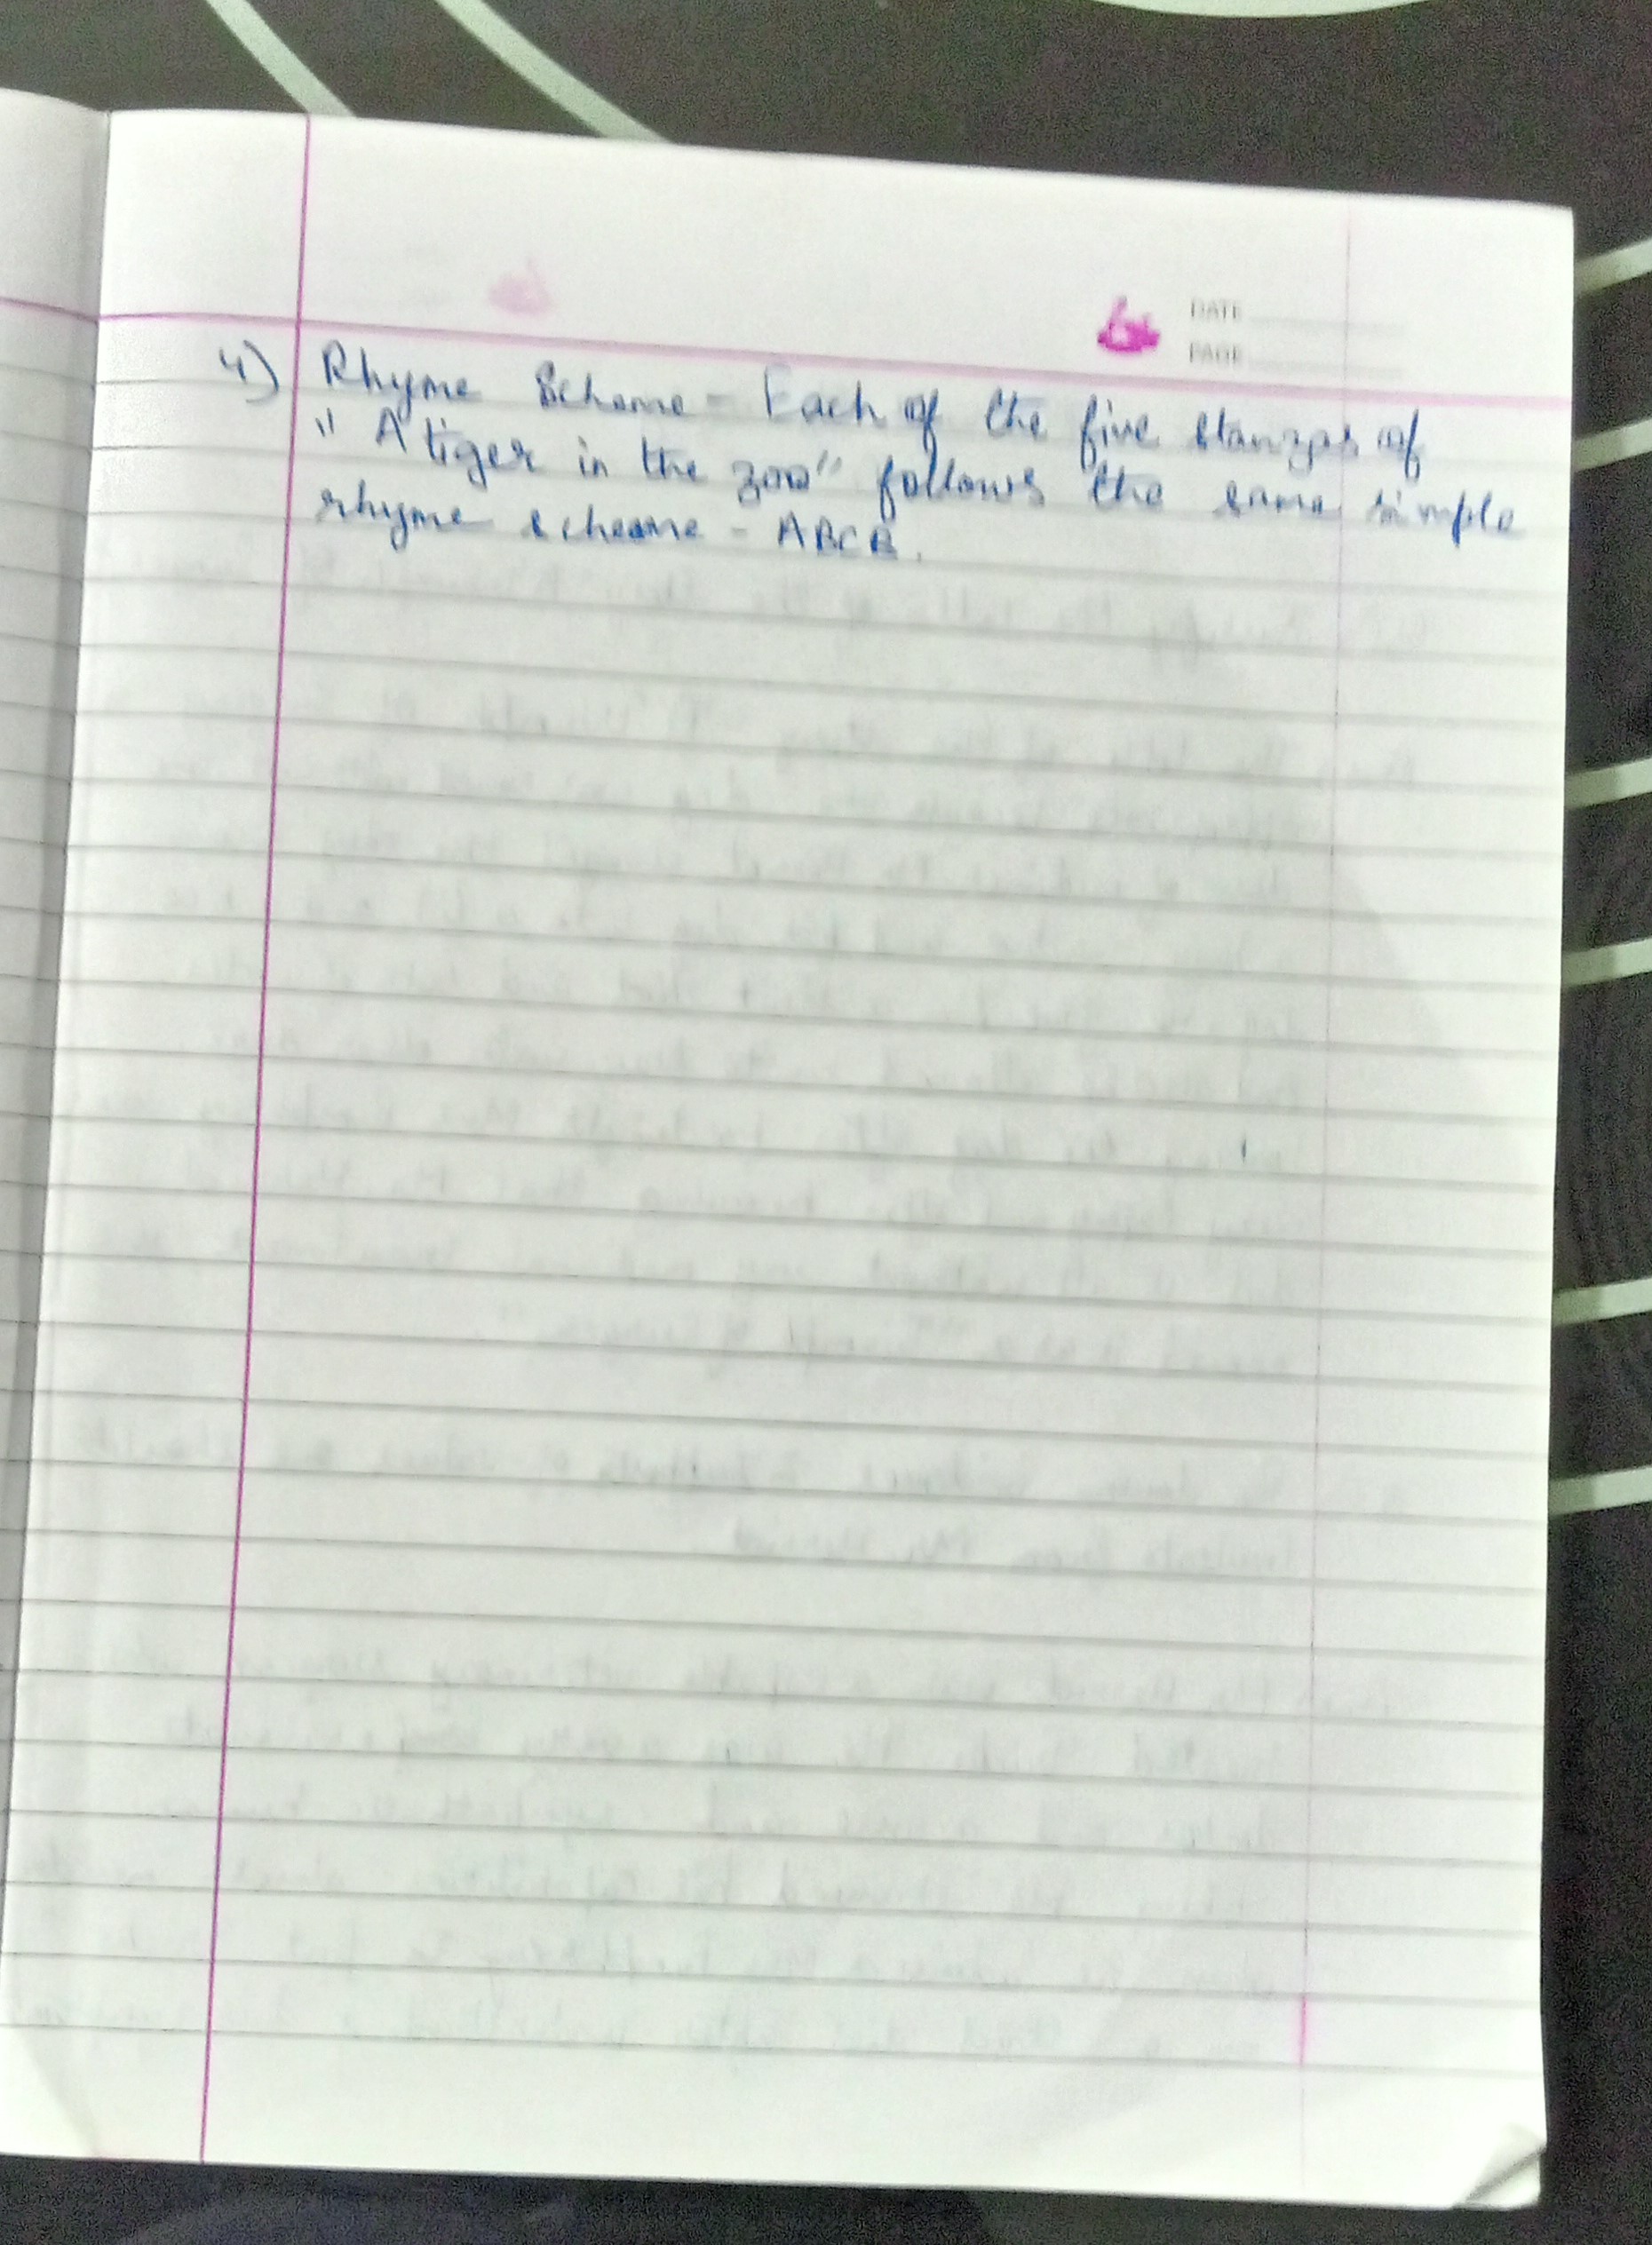 DATE
PAGE
4) Rhyme Scheme - Each of the five stanzas of
" A tiger in the zoo" follows the same simple
rhyme scheme - ABCB.